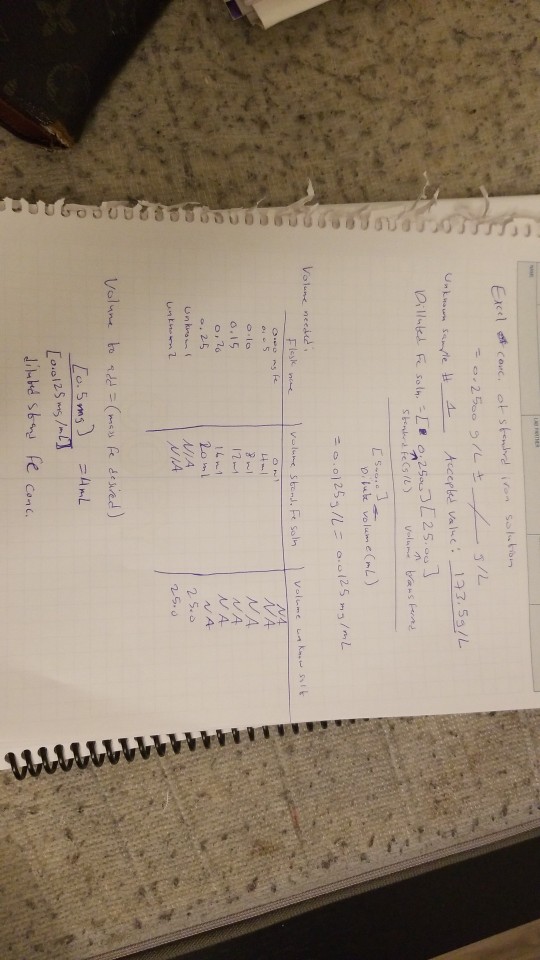 Excel conc. of standard iron solution
= 0.2500 g/L ± / g/L
Unknown sample # 1 Accepted value: 173.5g/L
Diluted Fe soln = [0.2500][25.00]
standard Fe(g/L) volume transfered
[500.0] ← Dilute volume (mL)
= 0.0125g/L = 0.0125 mg/mL
Volume needed:
Flask name | Volume stan. Fe soln | Volume unknown
0.00 mg Fe 0 ml NA
0.05 4ml N/A
0.10 8ml N/A
0.15 12ml NA
0.20 16ml NA
0.25 20ml N/A
unknown 1 N/A 25.0
unknown 2 N/A 25.0
Volume to add = (mass Fe desired)
[0.5mg] = 4mL
[0.0125mg/mL]
diluted stand Fe conc.